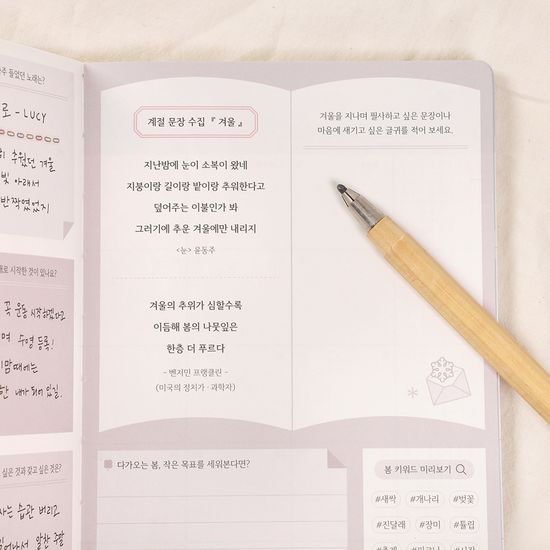 주 들었던 노래는?
로 - LUCY
추웠던 겨울
빛 아래서
반짝였었지
로 시작한 것이 있나요?
꼭 운동 시작하겠다고
며 수영 등록!
이맘때에는
한 내가 되어 있길.
싶은 것과 갖고 싶은 것은?
사는 습관 버리고
계절 문장 수집 『 겨울 』
지난밤에 눈이 소복이 왔네
지붕이랑 길이랑 밭이랑 추워한다고
덮어주는 이불인가 봐
그러기에 추운 겨울에만 내리지
<눈> 윤동주
겨울의 추위가 심할수록
이듬해 봄의 나뭇잎은
한층 더 푸르다
- 벤저민 프랭클린 -
(미국의 정치가 · 과학자)
겨울을 지나며 필사하고 싶은 문장이나
마음에 새기고 싶은 글귀를 적어 보세요.
다가오는 봄, 작은 목표를 세워본다면?
봄 키워드 미리보기
#새싹 #개나리 #벚꽃
#진달래 #장미 #튤립